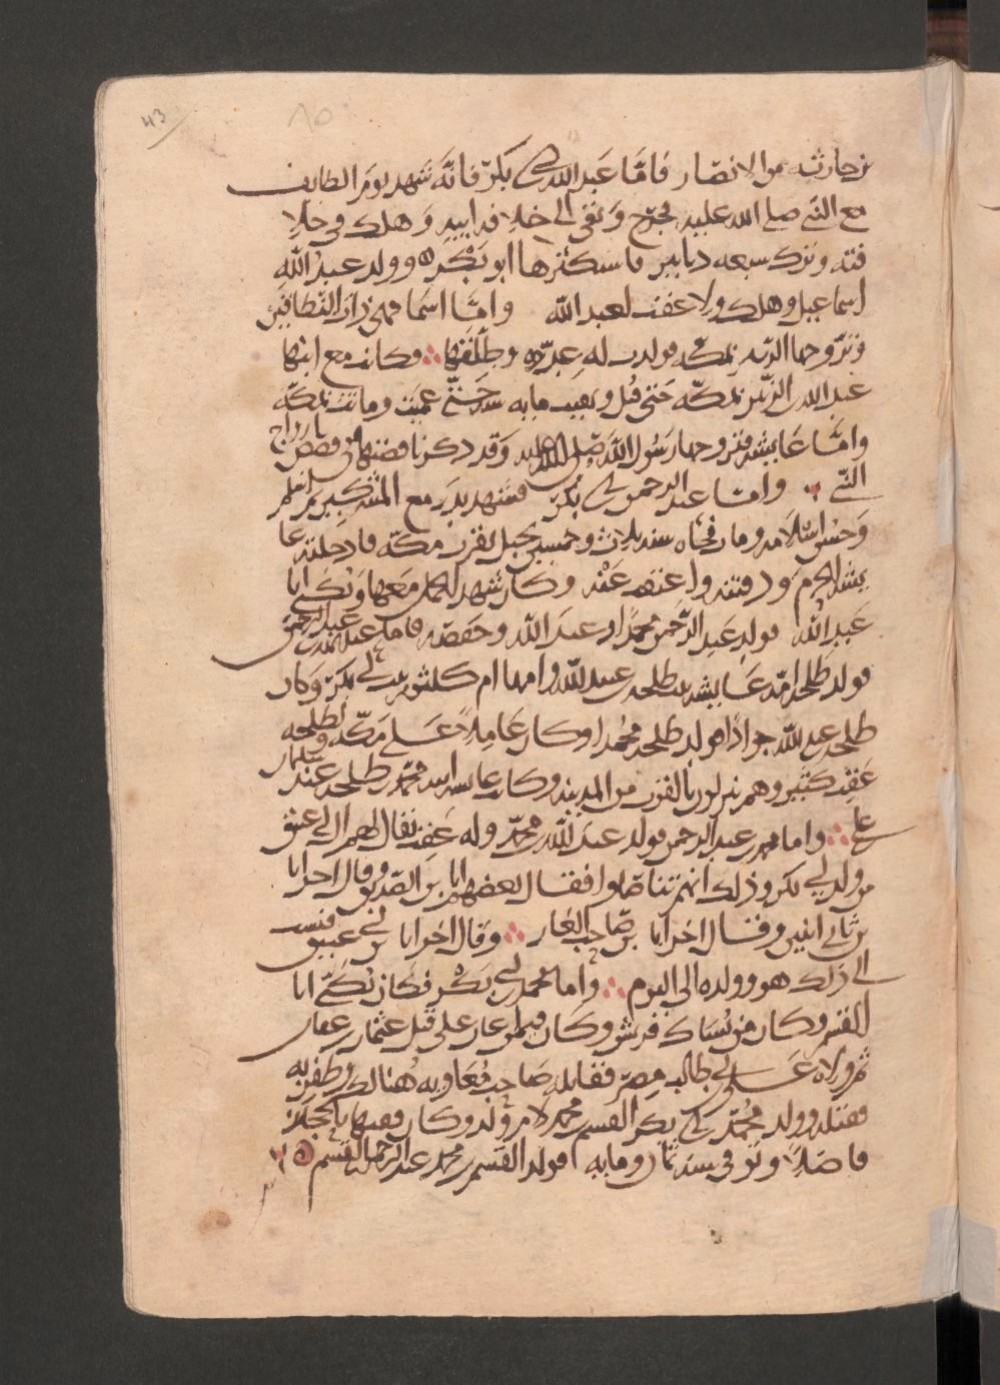 43 ٨٥
بن حارثه من الانصار فاما عبد الله بن ابي بكر فانه شهد يوم الطايف
مع النبي صلى الله عليه فجرح وبقى الى خلافه ابيه وهلك في خلا
فته وترك سبعه دنانير فاستكثرها ابو بكر ه وولد عبد الله
اسماعيل وهلك ولا عقب لعبد الله واما اسما فهي ذات النطاقين
وتزوجها الزبير بمكه فولدت له عده وطلقها وكانت مع ابنها
عبد الله بن الزبير بمكه حتى قتل وبقيت مايه سنه حتى عميت وماتت بمكه
واما عايشه فتزوجها رسول الله صلى الله عليه وقد ذكرنا قصتها في قصص ازواج
النبي واما عبد الرحمن بن ابي بكر فشهد بدر مع المشركين ثم اسلم
وحسن اسلامه ومات فجاه سنه ثلاث وخمسين بجبل بقرب مكه فادخلته عا
يشه الحرم ودفنته واعتقت عنه وكان شهد الجمل معها ويكنى ابا
عبد الله فولد عبد الرحمن محمدا وعبد الله وحفصه فاما عبد الله بن عبد الرحمن
فولد طلحه امه عايشه بنت طلحه بن عبيد الله وامها ام كلثوم بنت ابي بكر وكان
طلحه بن عبد الله جوادا فولد طلحه محمدا وكان عاملا على مكه ولطلحه
عقب كثير وهم ينزلون بالقرب من المدينه وكان عايشه ابنه محمد بن طلحه عند سليمان
بن علي واما محمد بن عبد الرحمن فولد عبد الله بن محمد وله عقب يقال لهم ال ابي عتيق
من ولد ابي بكر وذلك انهم تناضلوا فقال بعضهم انا بن الصديق وقال اخر انا
بن ثاني اثنين وقال اخر انا بن صاحب الغار وقال اخر انا بن ابي عتيق فنسب
الى ذلك هو وولده الى اليوم واما محمد بن ابي بكر فكان يكنى ابا
القسم وكان من نساك قريش وكان فيمن اعان على قتل عثمان بن عفان
ثم ولاه علي بن ابي طالب مصر فقاتله صاحب معاويه هنالك وظفر به
فقتله وولد محمد بن ابي بكر القسم بن محمد لام ولد وكان فقيها بالحجاز
فاضلا وتوفي سنه ثمان ومايه فولد القسم بن محمد عبد الرحمن بن القسم